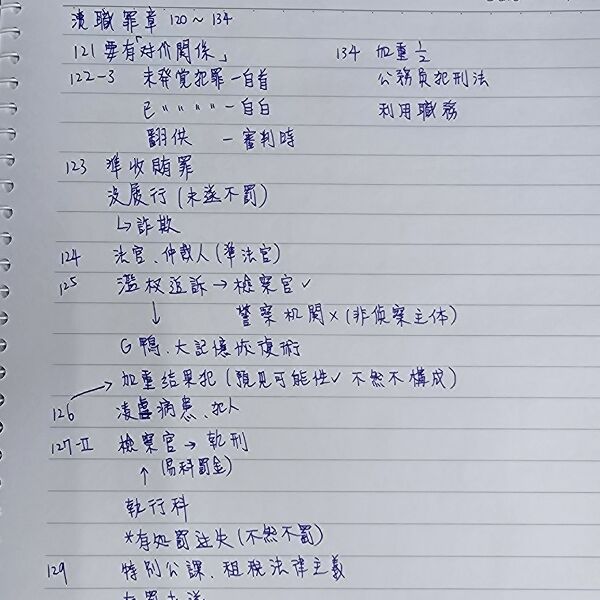 瀆職罪章 120～134
121 要有「对价関係」 134 加重 1/2
122-3 未発覚犯罪 — 自首 公務員犯刑法
已 〃 〃 〃 〃 — 自白 利用職務
翻供 — 審判時
123 準收賄罪
沒履行 (未遂不罰)
↳ 詐欺
124 法官、仲裁人 (準法官)
125 濫权追訴 → 檢察官 ✓
↓ 警察机関 × (非偵察主体)
G鴨、大記憶恢復術
加重结果犯 (預見可能性✓ 不然不構成)
126 凌虐病患、犯人
127-II 檢察官 → 執刑
↑ (易科罰金)
執行科
*有処罰过失 (不然不罰)
129 特別公課、租稅法律主義